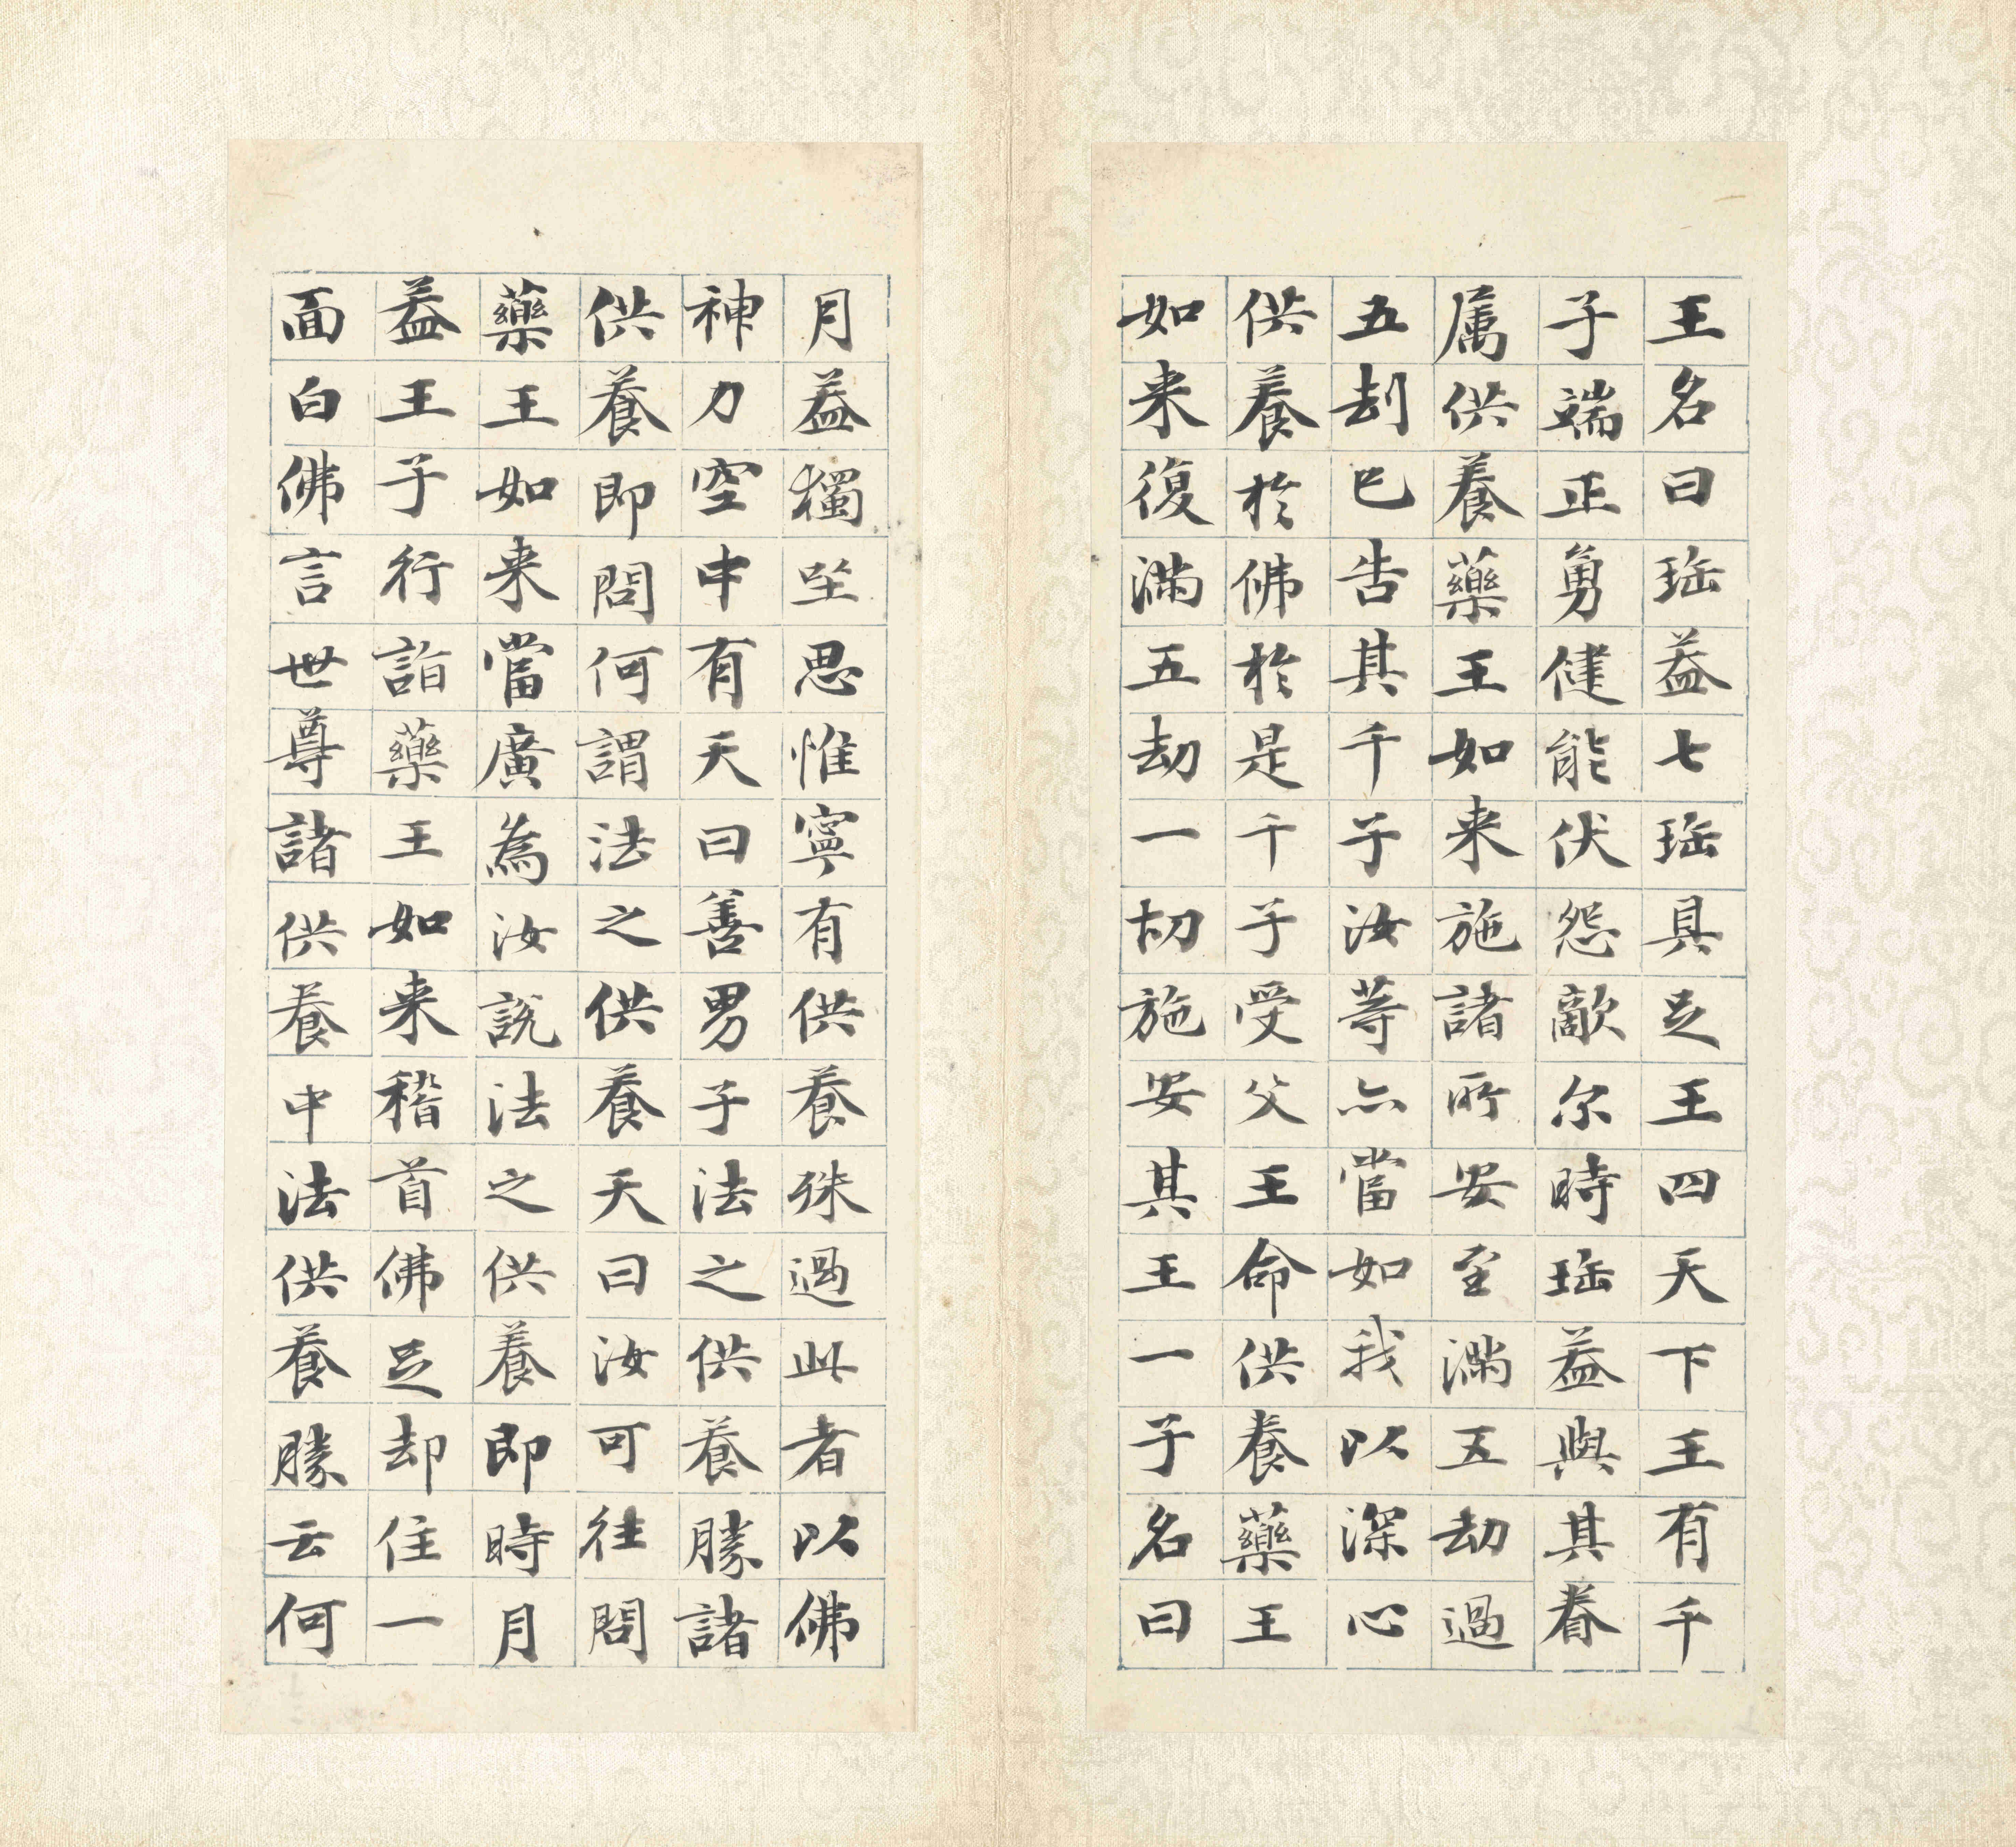 王名曰珤葢七珤具足王四天下王有千
子端正勇健能伏怨敵尔時珤葢與其眷
属供養藥王如来施諸所安至滿五劫過
五刧已告其千子汝等亦當如我以深心
供養於佛於是千子受父王命供養藥王
如来復滿五劫一切施安其王一子名曰
月葢獨坐思惟寧有供養殊過此者以佛
神力空中有天曰善男子法之供養勝諸
供養即問何謂法之供養天曰汝可往問
藥王如来當廣為汝說法之供養即時月
葢王子行詣藥王如来稽首佛足却住一
面白佛言世尊諸供養中法供養勝云何